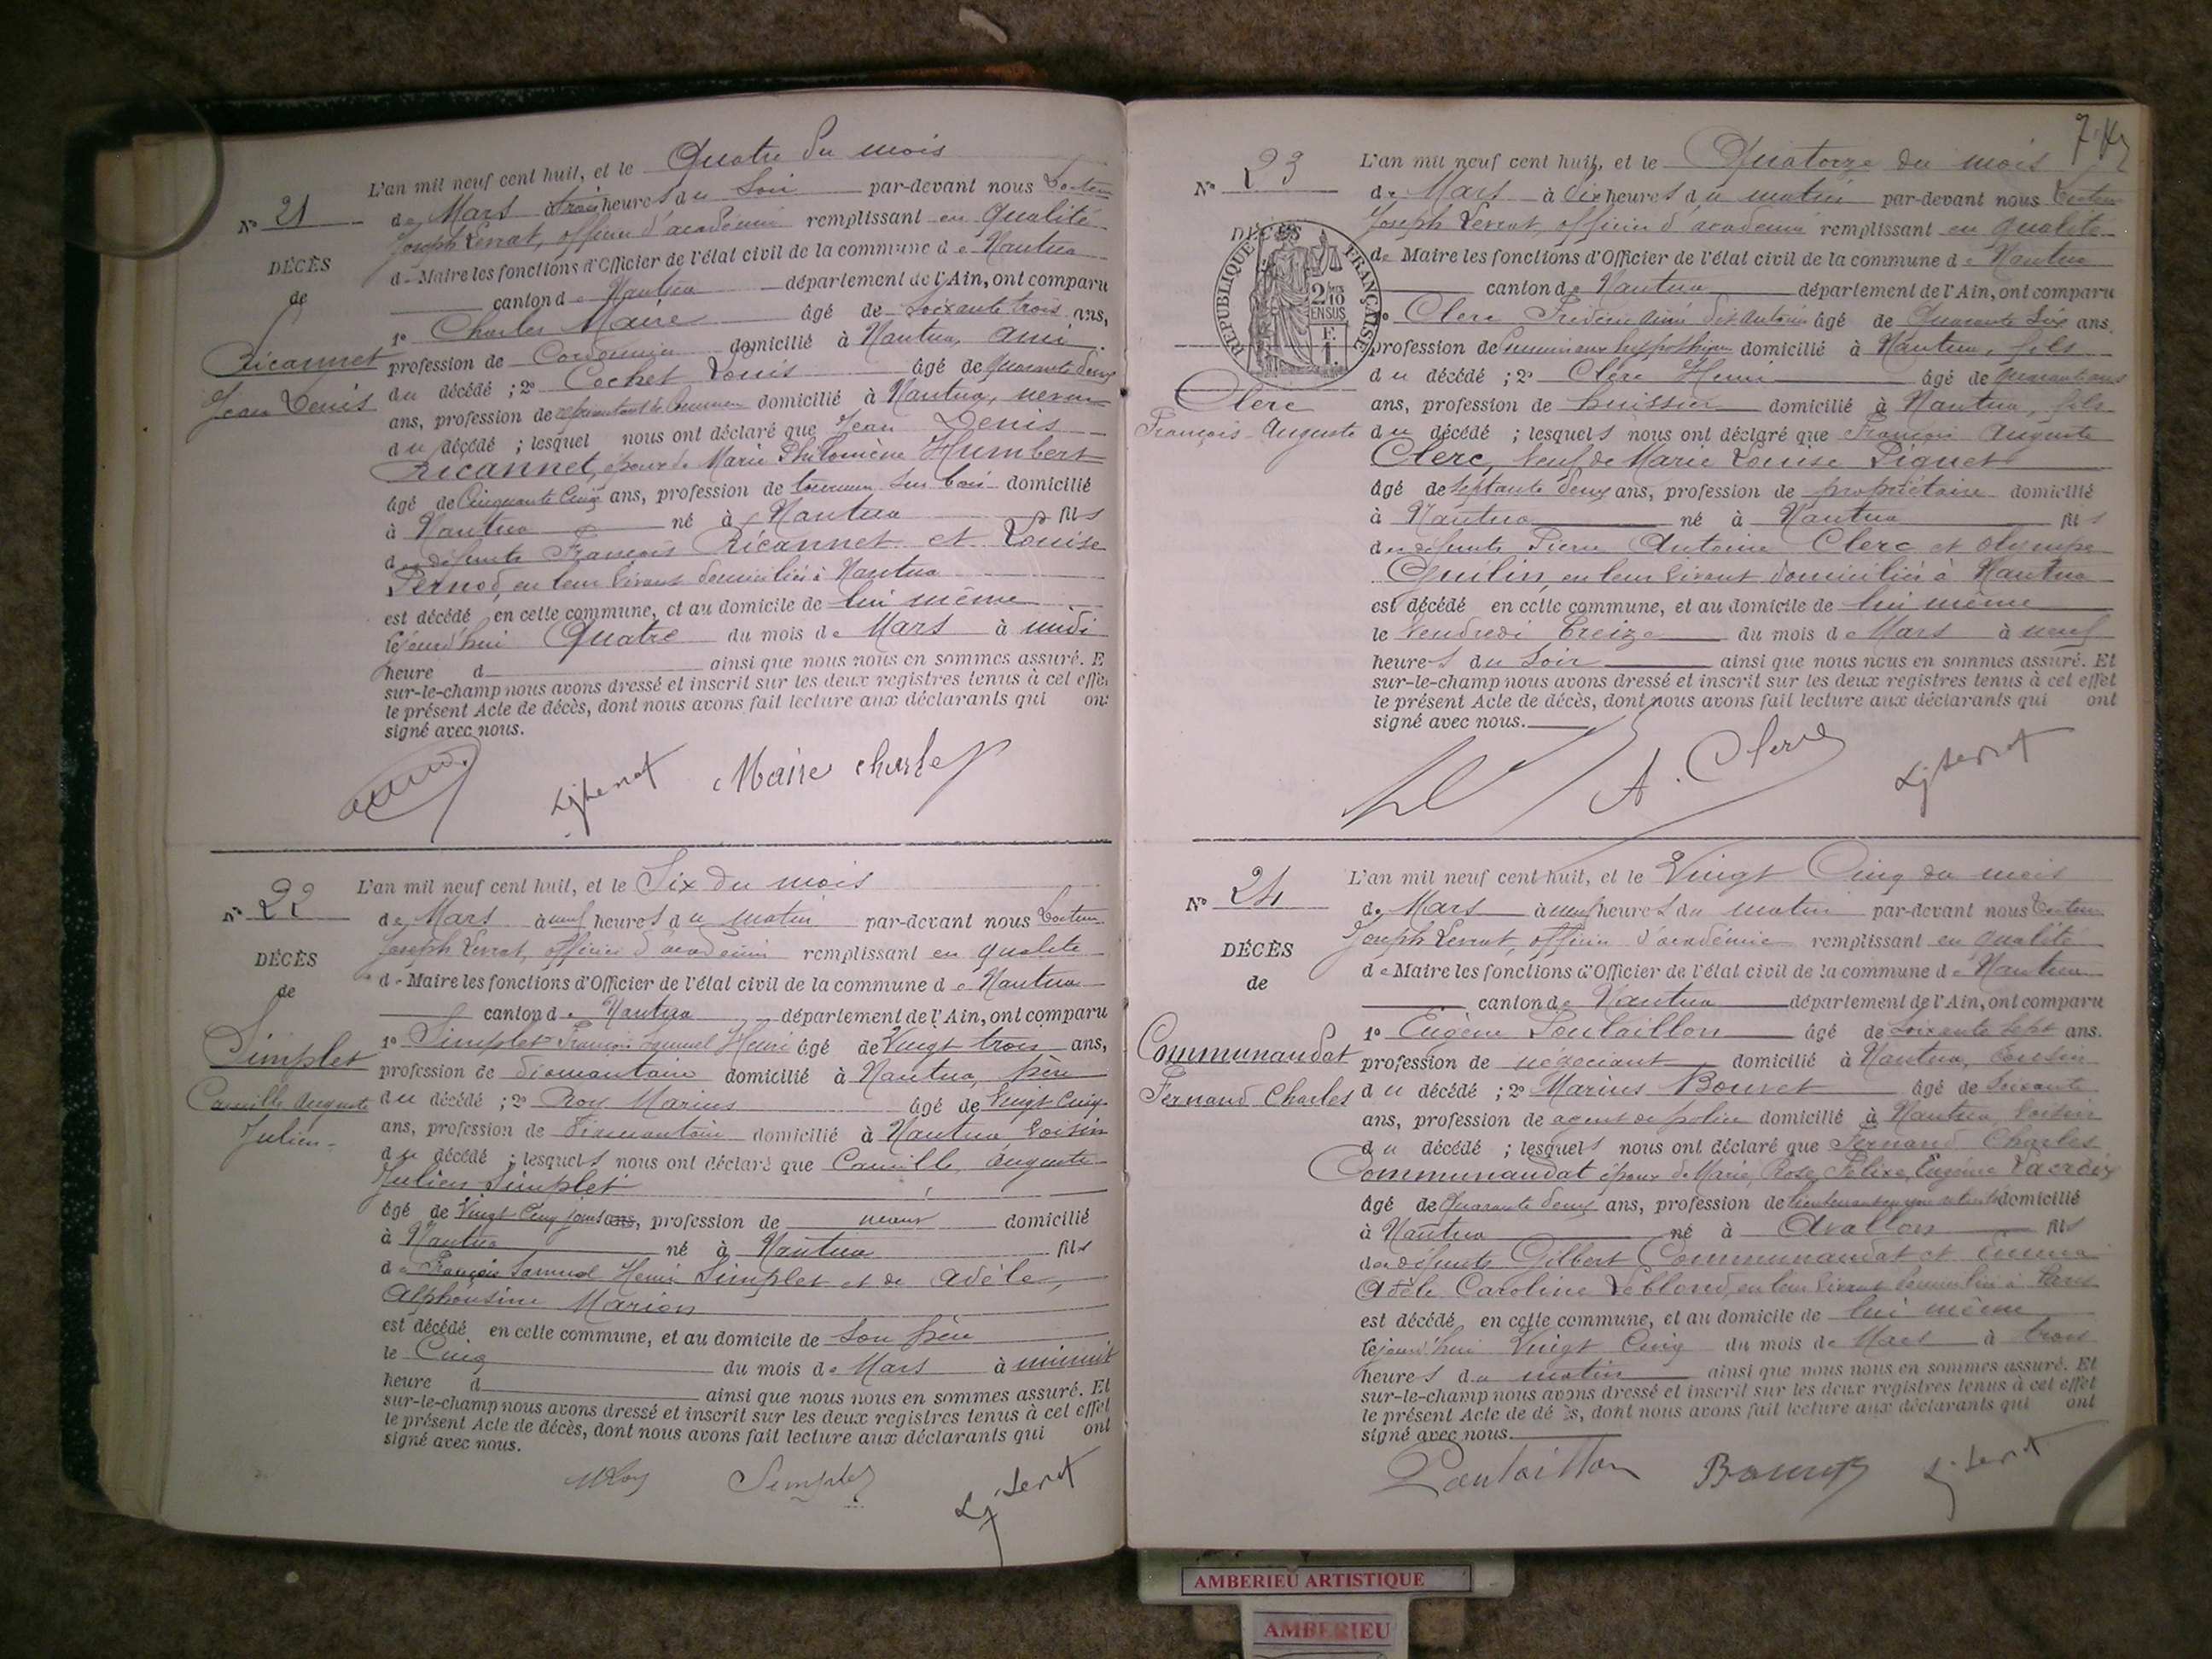 L'an mil neuf cent huit, et le Quatre du mois
N° 21
de Mars à trois heures du Soir par-devant nous Docteur
Joseph Levrat, officier d'académie remplissant en qualité
DÉCÈS
de Maire les fonctions d'Officier de l'état civil de la commune de Nantua
de
canton de Nantua département de l'Ain, ont comparu
1° Charles Maire âgé de Soixante trois ans,
Ricannet
Jean Denis
profession de Cordonnier domicilié à Nantua, ami
du décédé ; 2° Cochet Louis âgé de quarante deux
ans, profession de représentant de Commerce domicilié à Nantua, neveu
du décédé ; lesquel nous ont déclaré que Jean Denis
Ricannet, époux de Marie Philomène Humbert
âgé de Cinquante Cinq ans, profession de tourneur sur bois domicilié
à Nantua né à Nantua fils
des défunts François Ricannet et Louise
Pernod, en leur vivant domiciliés à Nantua
est décédé en cette commune, et au domicile de lui même
le jourd'hui Quatre du mois de Mars à midi
heure d ainsi que nous nous en sommes assuré. E
sur-le-champ nous avons dressé et inscrit sur les deux registres tenus à cet effet
le présent Acte de décès, dont nous avons fait lecture aux déclarants qui ont
signé avec nous.
Maire Charles
N° 22
L'an mil neuf cent huit, et le Six du mois
de Mars à neuf heures du matin par-devant nous Docteur
Joseph Levrat, officier d'académie remplissant en qualité
DÉCÈS
de Maire les fonctions d'Officier de l'état civil de la commune de Nantua
de
canton de Nantua département de l'Ain, ont comparu
Simplet
Camille Auguste
Julien
1° Simplet François Samuel Henri âgé de Vingt trois ans,
profession de diamantaire domicilié à Nantua, père
du décédé ; 2° Roy Marius âgé de Vingt Cinq
ans, profession de Diamantaire domicilié à Nantua Voisin
du décédé ; lesquels nous ont déclaré que Camille, Auguste
Julien Simplet
âgé de Vingt Cinq jours ans, profession de néant domicilié
à Nantua né à Nantua fils
de François Samuel Henri Simplet et de Adèle,
Alphonsine Marion
est décédé en cette commune, et au domicile de Son père
le Cinq du mois de Mars à minuit
heure d ainsi que nous nous en sommes assuré. Et
sur-le-champ nous avons dressé et inscrit sur les deux registres tenus à cet effet
le présent Acte de décès, dont nous avons fait lecture aux déclarants qui ont
signé avec nous.
MRoy Simplet
N° 23
L'an mil neuf cent huit, et le Quatorze du mois
de Mars à dix heures du matin par-devant nous Docteur
Joseph Levrat, officier d'académie remplissant en qualité
DÉCÈS
RÉPUBLIQUE FRANÇAISE
2/10 EN SUS
F. 1.
de Maire les fonctions d'Officier de l'état civil de la commune de Nantua
canton de Nantua département de l'Ain, ont comparu
1° Clerc âgé de Quarante Six ans,
profession de domicilié à Nantua, fils
du décédé ; 2° Clerc Henri âgé de quarante ans
Clerc
François Auguste
ans, profession de huissier domicilié à Nantua, fils
du décédé ; lesquels nous ont déclaré que François Auguste
Clerc, Veuf de Marie Louise Piquet
âgé de septante deux ans, profession de propriétaire domicilié
à Nantua né à Nantua fils
des défunts Pierre Antoine Clerc et Olympe
Guilin, en leur vivant domiciliés à Nantua
est décédé en cette commune, et au domicile de lui même
le Vendredi treize du mois de Mars à neuf
heures du Soir ainsi que nous nous en sommes assuré. Et
sur-le-champ nous avons dressé et inscrit sur les deux registres tenus à cet effet
le présent Acte de décès, dont nous avons fait lecture aux déclarants qui ont
signé avec nous.
A. Clerc
N° 24
L'an mil neuf cent huit, et le Vingt Cinq du mois
de Mars à neuf heures du matin par-devant nous Docteur
Joseph Levrat, officier d'académie remplissant en qualité
DÉCÈS
de Maire les fonctions d'Officier de l'état civil de la commune de Nantua
de
canton de Nantua département de l'Ain, ont comparu
1° Eugène Poulaillon âgé de Soixante Sept ans.
Communaudat
Fernand Charles
profession de négociant domicilié à Nantua, Cousin
du décédé ; 2° Marius Bouvet âgé de Soixante
ans, profession de agent de police domicilié à Nantua, Voisin
du décédé ; lesquels nous ont déclaré que Fernand Charles
Communaudat époux de Marie, Rose, Félixe, Eugénie Lacroix
âgé de Quarante deux ans, profession de domicilié
à Nantua né à Avallon fils
des défunts Gilbert Communaudat et Emma
Adèle Caroline Leblond, en leur vivant domiciliés à Paris
est décédé en cette commune, et au domicile de lui même
le jourd'hui Vingt Cinq du mois de Mars à trois
heures du matin ainsi que nous nous en sommes assuré. Et
sur-le-champ nous avons dressé et inscrit sur les deux registres tenus à cet effet
le présent Acte de dé ès, dont nous avons fait lecture aux déclarants qui ont
signé avec nous.
Poulaillon Bouvet
AMBERIEU ARTISTIQUE
AMBERIEU